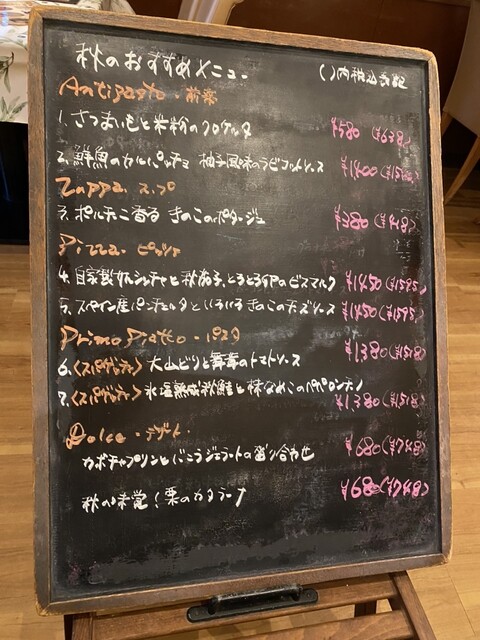 秋のおすすめメニュー ( )内税込表記
Antipasto・前菜
1. さつまいもと米粉のクロケッタ ¥580 (¥638)
2. 鮮魚のカルパッチョ 柚子風味のラビゴットソース ¥1400 (¥1540)
Zuppa スープ
3. ポルチーニ香る きのこのポタージュ ¥380 (¥418)
Pizza ピッツァ
4. 自家製サルシッチャと秋茄子、とろとろ卵のビスマルク ¥1450 (¥1595)
5. スペイン産パンチェッタといろいろきのこのチーズソース ¥1450 (¥1595)
Primo Piatto・パスタ
6. 〈スパゲッティ〉大山どりと舞茸のトマトソース ¥1380 (¥1518)
7. 〈スパゲッティ〉氷塩熟成秋鮭と株なめこのペペロンチーノ ¥1,380 (¥1518)
Dolce・デザート
カボチャプリンと ジェラートの盛り合わせ ¥680 (¥748)
秋の味覚！栗のカタラーナ ¥680 (¥748)